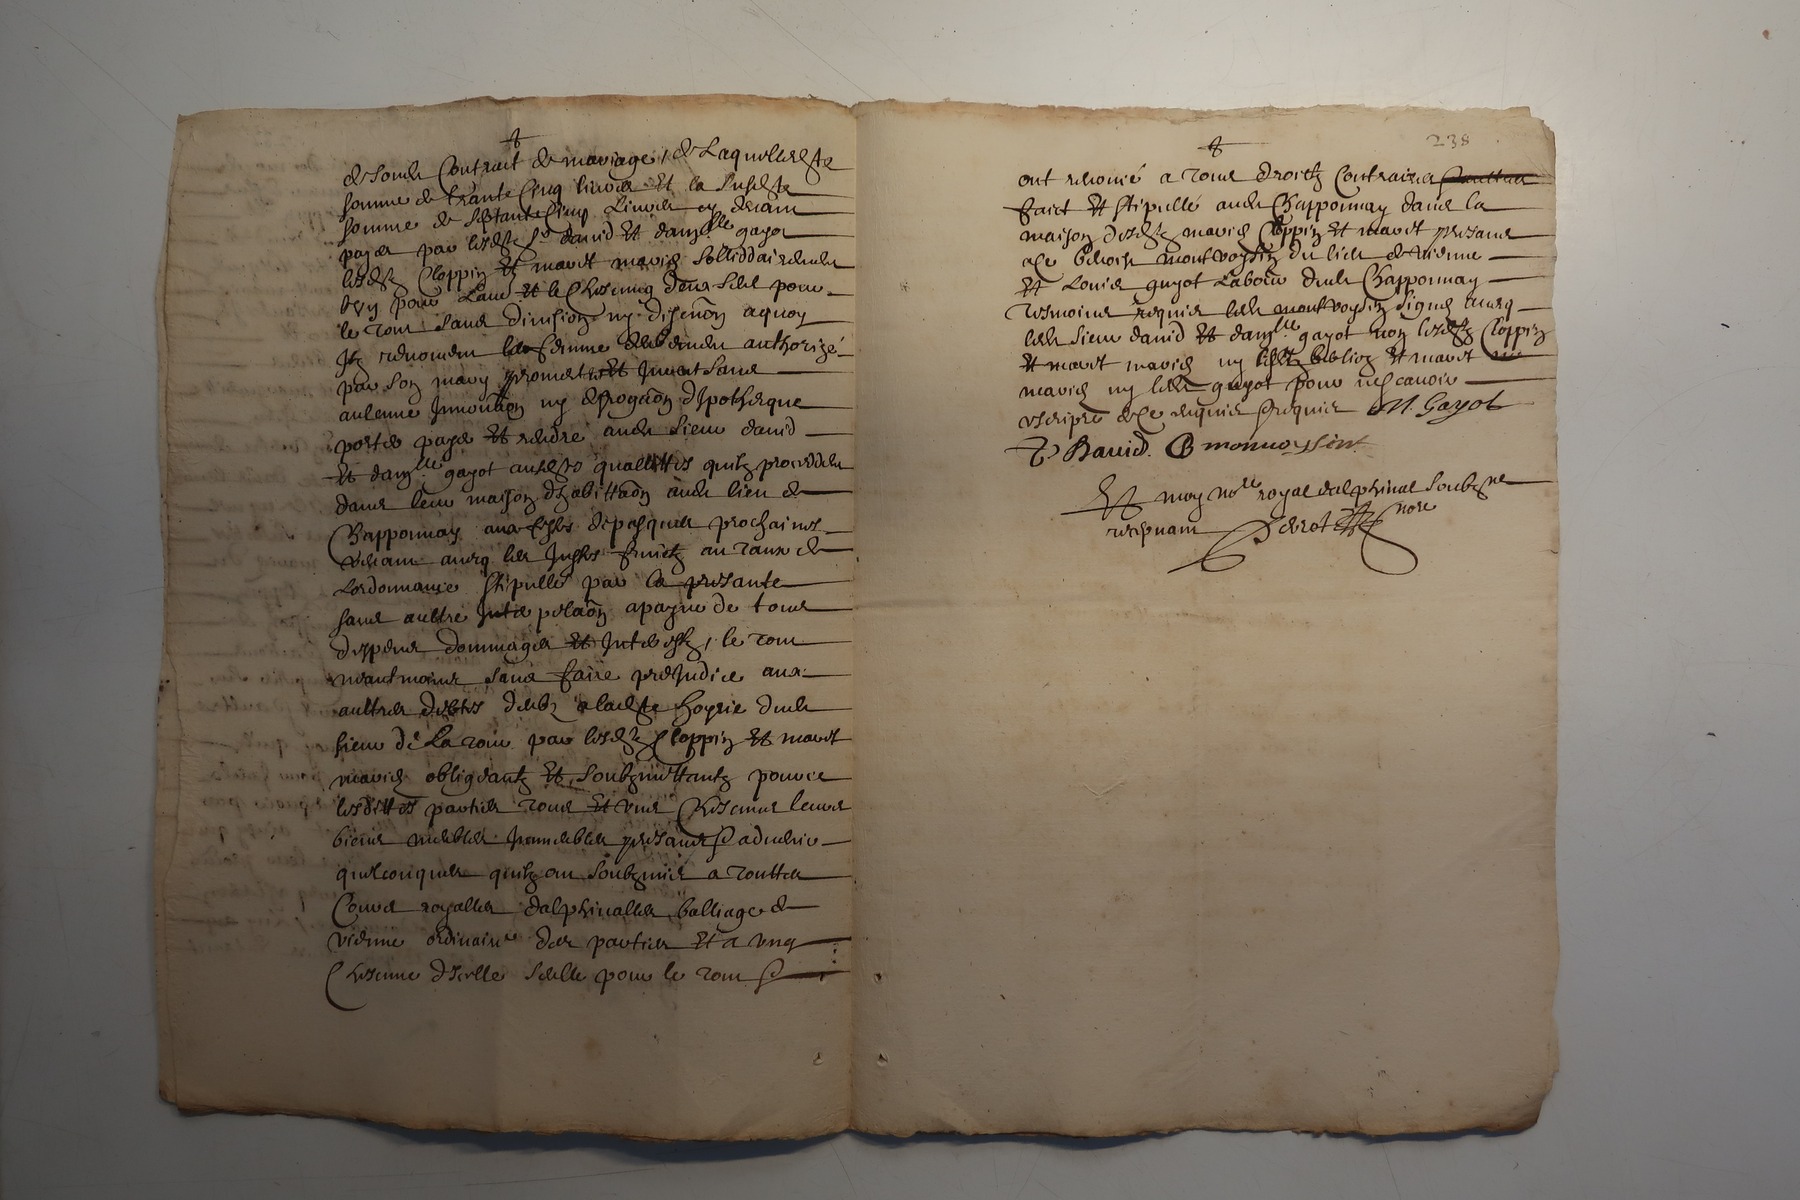 de sondt Contract de mariage, de Laquelle dte
somme de trante Cinq livres Et la susdte
somme de Septante Cinq Livres
payer par lesdts sr david Et damlle gayot
lesdtz Cloppin Et mavit mariés sollidairement
lung pour Laue Et le Chescung deux seul pour
le tout sans division ny discution aquoy
Ilz renoncent lad femme deubement authorizé
par son mary promettet Et Jurent sans
aulcune Innovaon ny derrogaon dhipotheque
porter payer Et rendre audt sieur david
Et damlle gayot ausdtes quallittes quilz procedent
dans leur maison dhabittaon audt lieu de
Chapponnay aux festes de pasques prochaines
venant avecq les Justes fruictz au taux de
Lordonnance stipullé par la presante
sans aultre Interpelaon apayne de tous
despens dommages Et Interestz, le tout
neantmoins sans faire preJudice aux
aultres debtes deubz a ladte hoyrie dudt
sieur De La tour par lesdtz Cloppin Et mavit
mariés obligeantz Et soubzmettantz pource
lesdittes parties tous Et uns Chescuns leurs
biens meubles Immeubles presans & advenir
quelconques quilz ont soubzmis a touttes
Cours royalles dalphinalles balliage de
vienne ordinaire des parties Et a ung
Chescune dicelle seulle pour le tout &
238
ont renoncé a tous droictz Contraires
faict Et stipullé audt Chapponnay dans la
maison desdtz mariés Cloppin Et mavit presans
me benoist montvoysin du lieu de vienne
Et Louis guyot Labour dudt Chapponnay
tesmoins requis ledt montvoysin signé avecq
ledt sieur david Et damlle gayot non lesdtz Cloppin
Et mavit mariés ny
mariés ny ledt guyot pour ne scavoir
escripre de ce enquis & requis M. Gayot
David. B monvoysint
Et moy nore royal dalphinal soubzne
recepvant Perrot nore